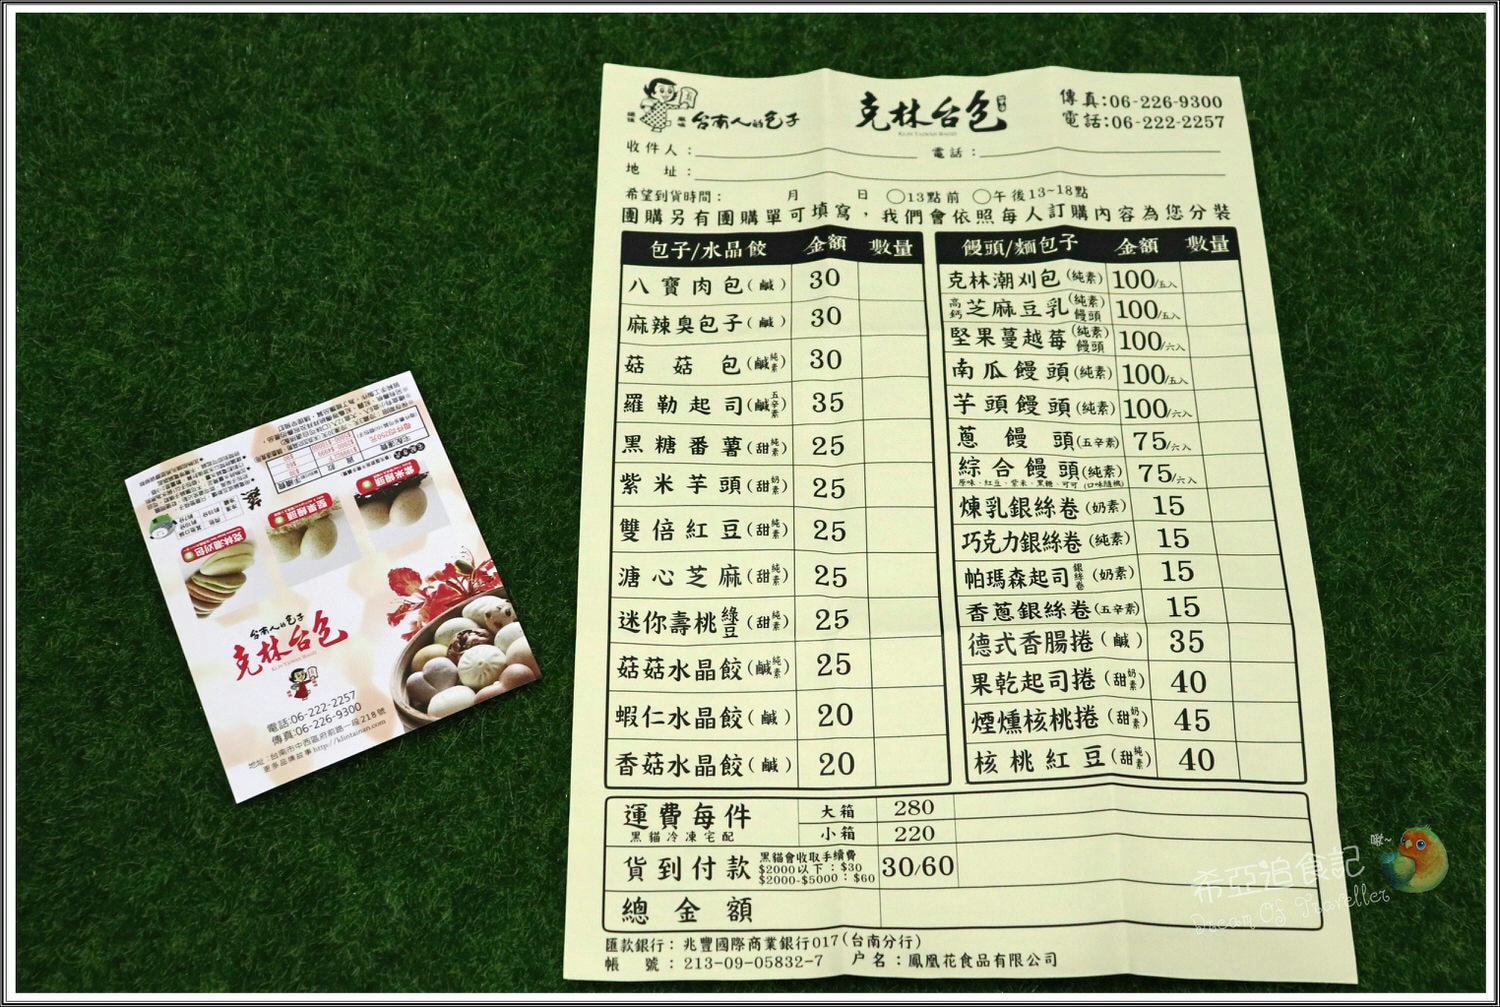 台南人的包子
克林台包
KLIN TAIWAN BAOZI
傳真:06-226-9300
電話:06-222-2257
收件人:
電話:
地 址:
希望到貨時間: 月 日 ○13點前 ○午後13~18點
團購另有團購單可填寫,我們會依照每人訂購內容為您分裝
包子/水晶餃 金額 數量
八寶肉包(鹹) 30
麻辣臭包子(鹹) 30
菇菇包(鹹純素) 30
羅勒起司(鹹五辛素) 35
黑糖番薯(甜純素) 25
紫米芋頭(甜奶素) 25
雙倍紅豆(甜純素) 25
溏心芝麻(甜純素) 25
迷你壽桃綠豆(甜純素) 25
菇菇水晶餃(鹹純素) 25
蝦仁水晶餃(鹹) 20
香菇水晶餃(鹹) 20
饅頭/麵包子 金額 數量
克林潮刈包(純素) 100/五入
高鈣芝麻豆乳(純素)饅頭 100/五入
堅果蔓越莓(純素)饅頭 100/六入
南瓜饅頭(純素) 100/五入
芋頭饅頭(純素) 100/六入
蔥饅頭(五辛素) 75/六入
綜合饅頭(純素) 75/六入
原味、紅豆、紫米、黑糖、可可 (口味隨機)
煉乳銀絲卷(奶素) 15
巧克力銀絲卷(純素) 15
帕瑪森起司銀絲卷(奶素) 15
香蔥銀絲卷(五辛素) 15
德式香腸捲(鹹) 35
果乾起司捲(甜奶素) 40
煙燻核桃捲(甜奶素) 45
核桃紅豆(甜純素) 40
運費每件 大箱 280
黑貓冷凍宅配 小箱 220
貨到付款 黑貓會收取手續費 30/60
$2000以下:$30
$2000-$5000:$60
總金額
匯款銀行:兆豐國際商業銀行017(台南分行)
帳 號:213-09-05832-7 戶名:鳳凰花食品有限公司
紫米饅頭
堅果饅頭
克林潮刈包
蒸
台南人的包子
克林台包
KLIN TAIWAN BAOZI
電話:06-222-2257
傳真:06-226-9300
地址:台南市中西區府前路一段218號
更多品牌故事 http://klintainan.com
希亞追食記
Dream Of Traveller